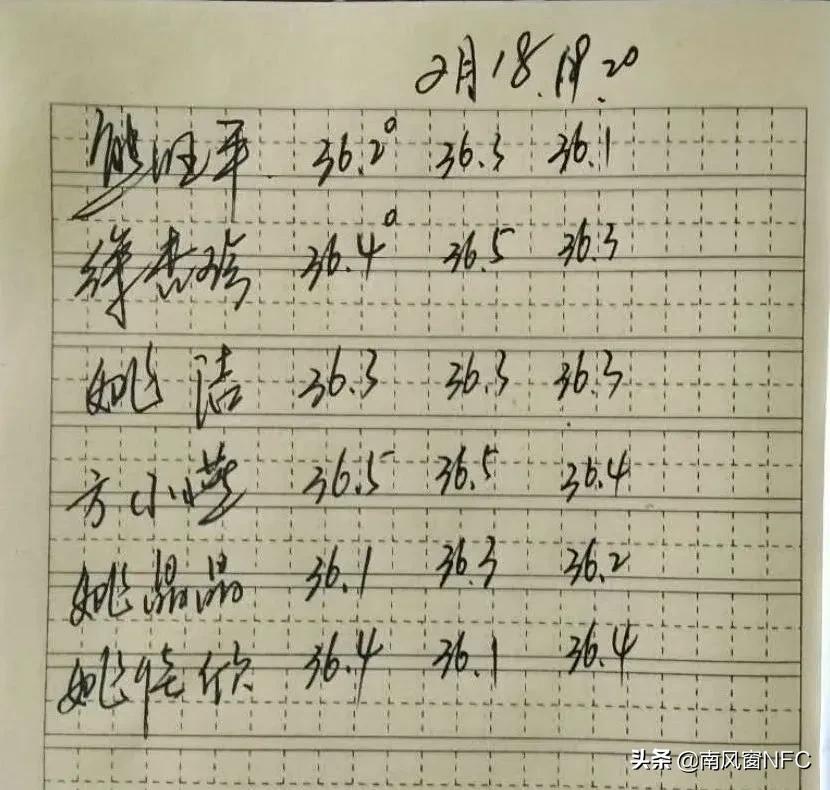 2月18.19.20
熊旺平 36.2° 36.3 36.1
徐杏 36.4° 36.5 36.3
姚洁 36.3 36.3 36.3
方小燕 36.5 36.5 36.4
姚晶晶 36.1 36.3 36.2
姚欣 36.4 36.1 36.4
头条 @南风窗NFC